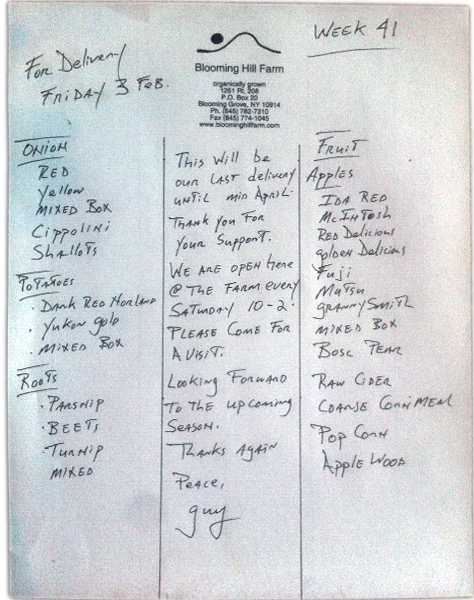 For Delivery
FRIDAY 3 FEB.
WEEK 41
Blooming Hill Farm
organically grown
1251 Rt. 208
P.O. Box 20
Blooming Grove, NY 10914
Ph. (845) 782-7310
Fax (845) 774-1045
www.bloominghillfarm.com
ONION
RED
Yellow
MIXED BOX
Cippolini
Shallots
POTATOES
· DARK RED NORLAND
· Yukon gold
· MIXED BOX
ROOTS
· PARSNIP
· BEETS
· TURNIP
MIXED
This Will be
our LAST delivery
UNTIL mid APRIL.
THANK you FOR
Your Support.
WE ARE OPEN here
@ THE FARM EVERY
SATURDAY 10-2.
PLEASE COME FOR
A VISIT.
Looking Forward
TO THE upcoming
SEASON.
THANKS AGAIN
PEACE,
guy
FRUIT
Apples
IDA RED
McINTOSH
RED Delicious
golden Delicious
Fuji
Mutsu
GRANNY SMITH
MIXED BOX
BOSC PEAR
RAW CIDER
COARSE CORN MEAL
POP CORN
APPLE WOOD